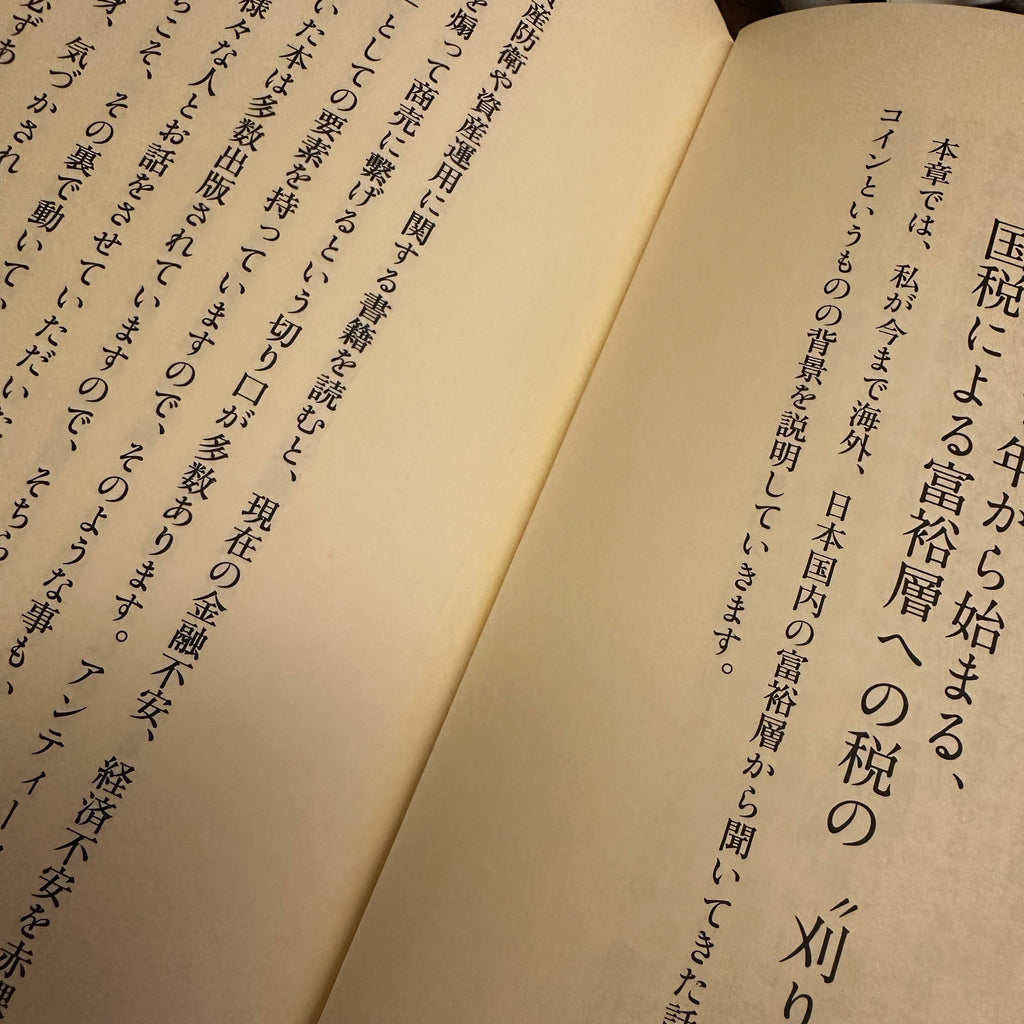 年から始まる、
国税による富裕層への税の〝刈り
本章では、私が今まで海外、日本国内の富裕層から聞いてきた話
コインというものの背景を説明していきます。
資産防衛や資産運用に関する書籍を読むと、現在の金融不安、経済不安を赤裸
を煽って商売に繋げるという切り口が多数あります。アンティー
としての要素を持っていますので、そのような事も、
いた本は多数出版されていますので、そちら
様々な人とお話をさせていただいた
らこそ、その裏で動いてい
身、気づかされ
必ずあ